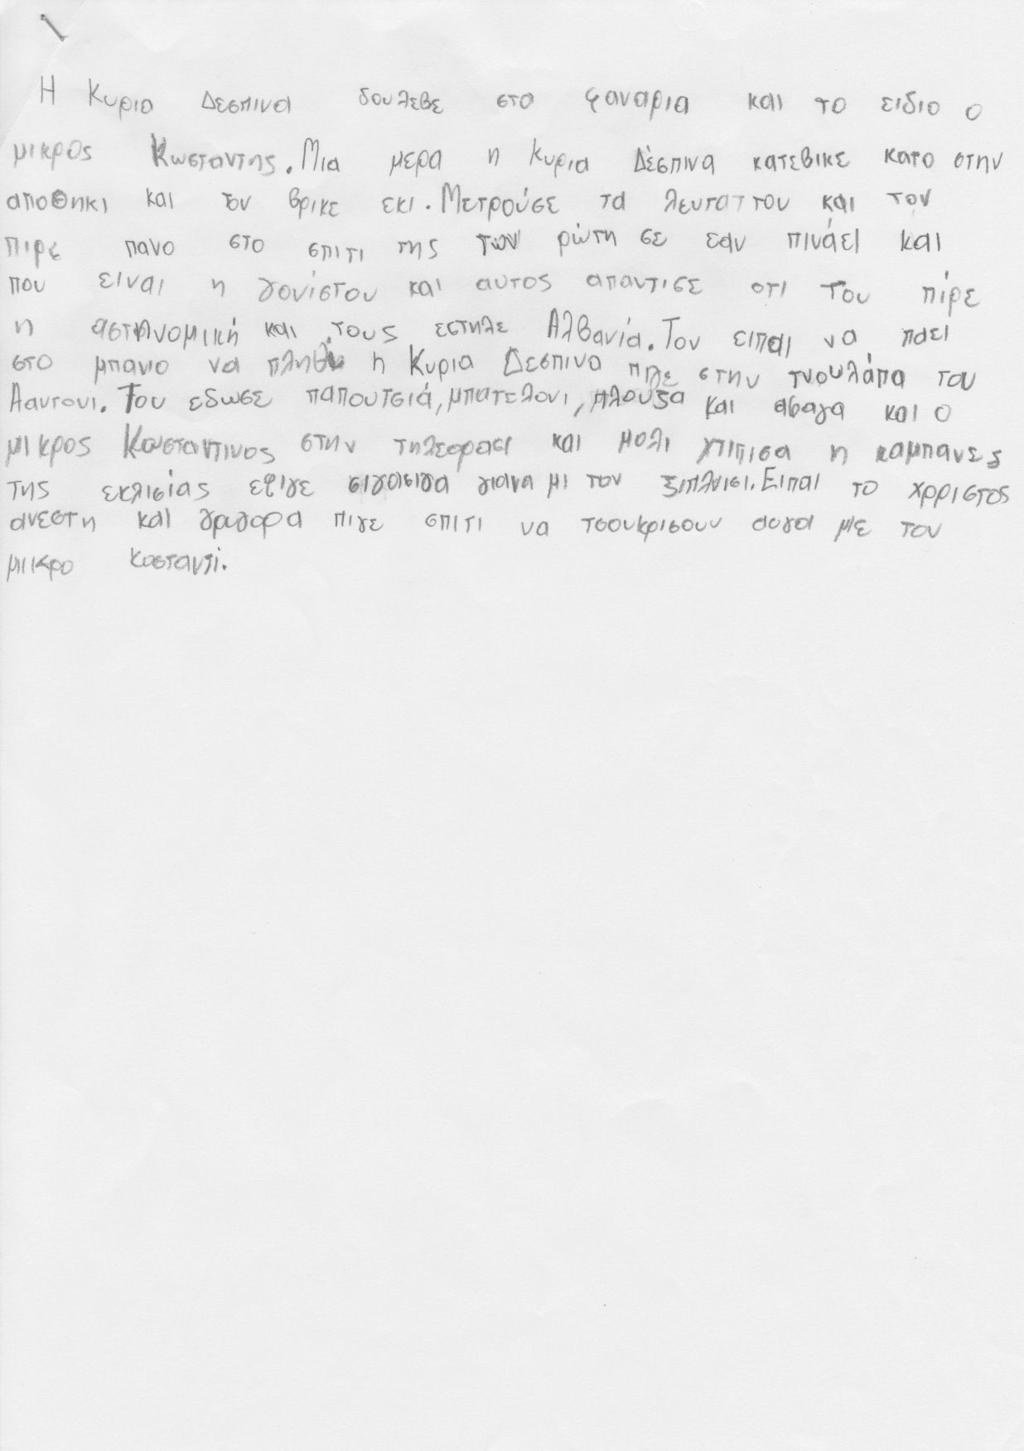 Η Κυρια Δεσπινα δουλεβε στα φαναρια και το ειδιο ο
μικρος Κωσταντης. Μια μερα η Κυρια Δέσπινα κατεβικε κατο στην
αποθηκι και τον βρικε εκι. Μετρούσε τα λευτατου και τον
πιρε πανο στο σπιτι της των ρώτη σε εαν πινάει και
που ειναι η γονίστου και αυτος απαντισε οτι του πίρε
η αστινομική και τους εστηλε Αλβανία. Τον ειπαι να παει
στο μπανιο να πληθι η Κυρια Δεσπινα πιγε στην ντουλάπα του
Λαντονι. Του εδωσε παπουτσιά, μπατελονι, μπλουζα και αβαγα και ο
μικρος Κωσταντινος στην τηλεορασι και μολι χτιπισα η καμπανες
της εκλισίας εφιγε σιγασιγα γιανα μι τον ξιπλνισι. Ειπαι το χρριστος
ανεστη και γρηγορα πιγε σπιτι να τσουκρισουν αυγα με τον
μικρο κοσταντί.